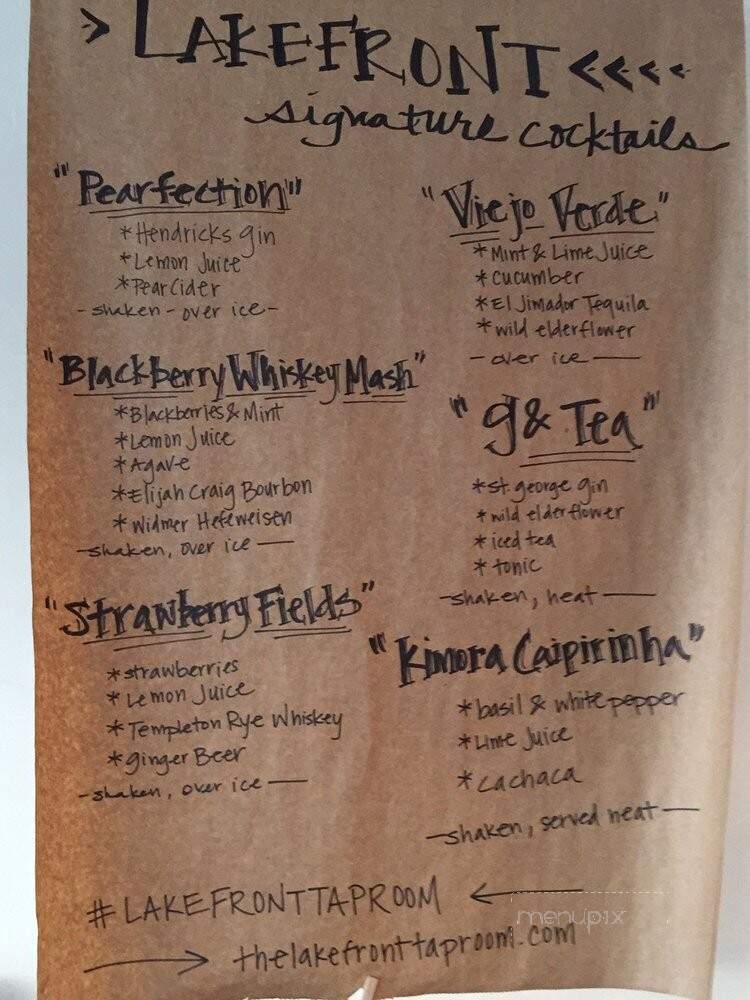 > LAKEFRONT <<<<
signature cocktails
"Pearfection"
*Hendricks gin
*Lemon Juice
*Pear Cider
- shaken - over ice -
"Blackberry Whiskey Mash"
*Blackberries & Mint
*Lemon Juice
*Agave
*Elijah Craig Bourbon
*Widmer Hefeweisen
- shaken, over ice -
"Strawberry Fields"
*strawberries
*Lemon Juice
*Templeton Rye Whiskey
*ginger Beer
- shaken, over ice -
"Viejo Verde"
*Mint & Lime Juice
*cucumber
*El Jimador Tequila
*wild elderflower
- over ice -
"g & Tea"
*st. george gin
*wild elderflower
*iced tea
*tonic
- shaken, neat -
"Kimora Caipirinha"
*basil & white pepper
*Lime Juice
*cachaca
- shaken, served neat -
#LAKEFRONTTAPROOM ←
→ thelakefronttaproom.com
menupix